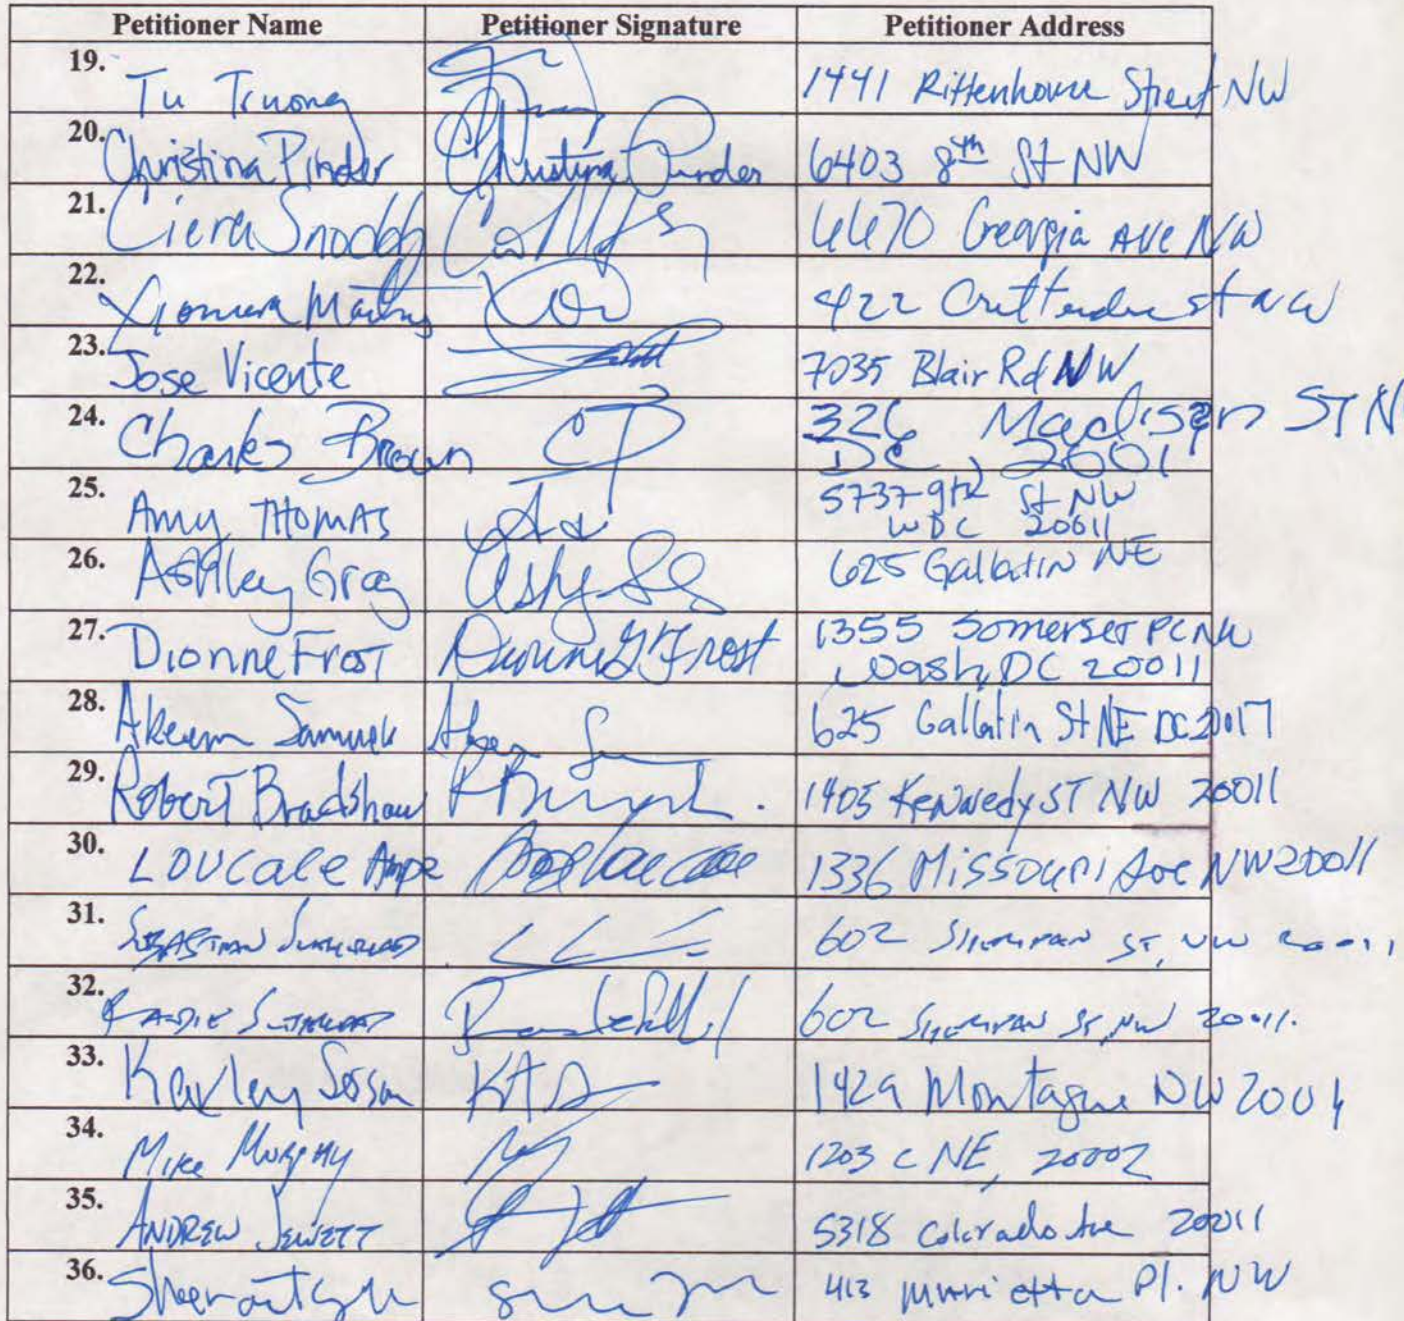 Petitioner Name Petitioner Signature Petitioner Address
19. Tu Truong 1441 Rittenhouse Street NW
20. Christina Pinder Christina Pinder 6403 8th St NW
21. Ciera Snoddy 6670 Georgia Ave NW
22. Xiomara 422 Crittenden st NW
23. Jose Vicente 7035 Blair Rd NW
24. Charles Brown CB 326 Madison ST N
DC, 20011
25. Amy THOMAS 5737 9th St NW
WDC 20011
26. Ashley Gray 625 Gallatin NE
27. Dionne Frost Dionne G Frost 1355 Somerset PL NW
Wash, DC 20011
28. Akeem Samuels 625 Gallatin St NE DC 20017
29. Robert Bradshaw 1405 Kennedy ST NW 20011
30. Loucace Ampe 1336 Missouri Ave NW 20011
31. SEBASTIAN SUTHERLAND 602 SHERIDAN ST, NW 20011
32. SUTHERLAND 602 SHERIDAN ST, NW 20011.
33. Kayley KAS 1429 Montague NW
34. Mike Murphy 1203 C NE, 20002
35. ANDREW JEWETT 5318 Colorado Ave 20011
36. 413 Marietta Pl. NW